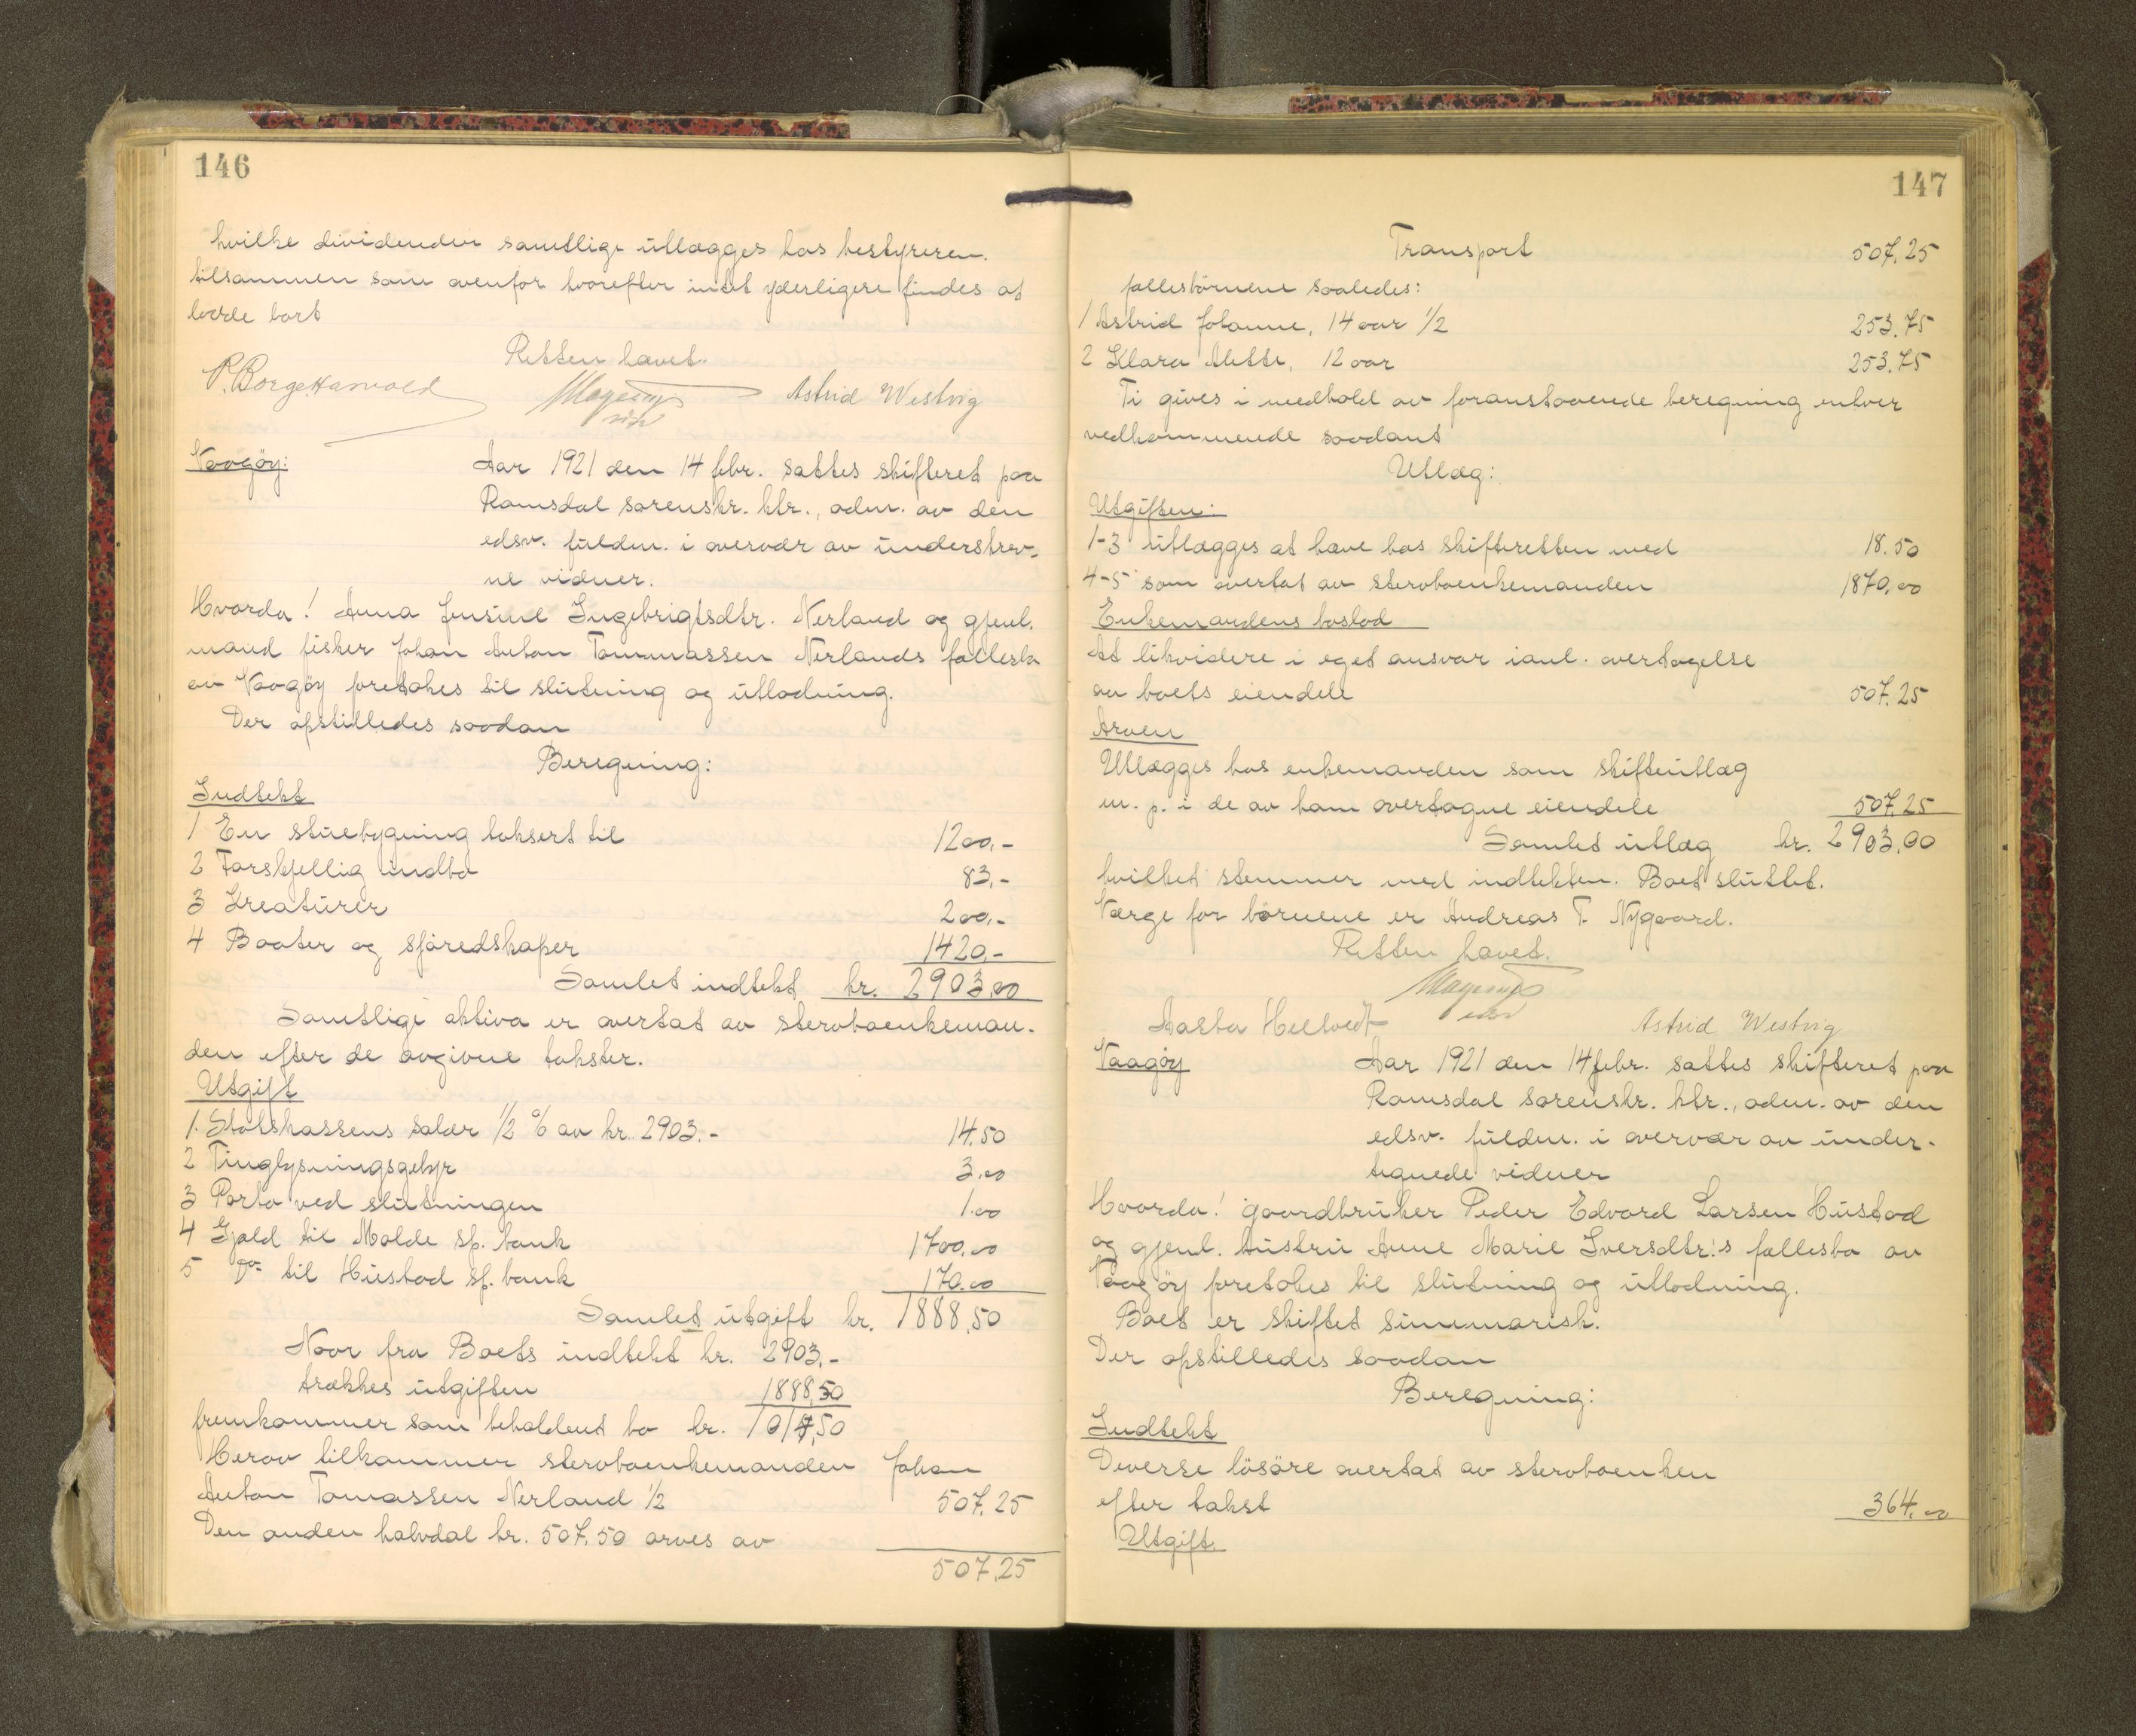 146
hvilke dividender samtlige utlægges hos bestyreren.
tilsammen som ovenfor hvorefter intet yderligere findes at
lodde bort
Retten hævet.
P. Borge Harvold
Astrid Westvig
Vaagøy:
Aar 1921 den 14 febr. sattes skifteret paa
Romsdal sorenskr. ktr., adm. av den
edsv. fuldm. i overvær av underskrev-
ne vidner.
Hvorda! Anna Jensine Ingebrigtsdtr. Nerland og gjenl.
mand fisker Johan Anton Tommassen Nerlands fællesbo
av Vaagøy foretokes til slutning og utlodning.
Der opstilledes saadan
Beregning:
Indtekt
1 En stuebygning taksert til 1200,-
2 Forskjellig indbo 83,-
3 Kreaturer 200,-
4 Baater og sjøredskaper 1420,-
Samlet indtekt kr. 2903,00
Samtlige aktiva er overtat av stervboenkeman-
den efter de avgivne takster.
Utgift
1. Statskassens salær 1/2 % av kr. 2903.- 14.50
2 Tinglysningsgebyr 3,00
3 Porto ved slutningen 1.00
4 Gjæld til Molde sp. bank 1700,00
5 do. til Hustad sp. bank 170.00
Samlet utgift kr. 1888,50
Naar fra Boets indtekt kr. 2903,-
trækkes utgiften 1888,50
fremkommer som beholdent bo kr. 1014,50
Herav tilkommer stervboenkemanden Johan
Anton Tomassen Nerland 1/2 507,25
Den anden halvdal kr. 507.50 arves av
507,25
147
Transport 507,25
fællesbørnene saaledes:
1 Astrid Johanne, 14 aar 1/2 253.75
2 Klara Mette, 12 aar 253.75
Ti gives i medhold av foranstaaende beregning enhver
vedkommende saadant
Utlæg:
Utgiften:
1-3 utlægges at hæve hos skifteretten med 18.50
4-5 som overtat av stervboenkemanden 1870,00
Enkemandens boslod
At likvidere i eget ansvar ianl. overtagelse
av boets eiendele 507.25
Arven
Utlægges hos enkemanden som skifteutlæg
m. p. i de av ham overtagne eiendele 507.25
Samlet utlæg kr. 2903.00
hvilket stemmer med indtekten. Boet sluttet.
Værge for børnene er Andreas T. Nygaard.
Retten hævet.
Aasta Heltvedt
Astrid Westvig
Vaagøy
Aar 1921 den 14 febr. sattes skifteret paa
Romsdal sorenskr. ktr., adm. av den
edsv. fuldm. i overvær av under-
tegnede vidner
Hvorda! gaardbruker Peder Edvard Larsen Hustad
og gjenl. hustru Anne Marie Iversdtr.'s fællesbo av
Vaagøy foretokes til slutning og utlodning.
Boet er skiftet summarisk.
Der opstilledes saadan
Beregning:
Indtekt
Diverse løsøre overtat av stervboenken
efter takst 364.00
Utgift.